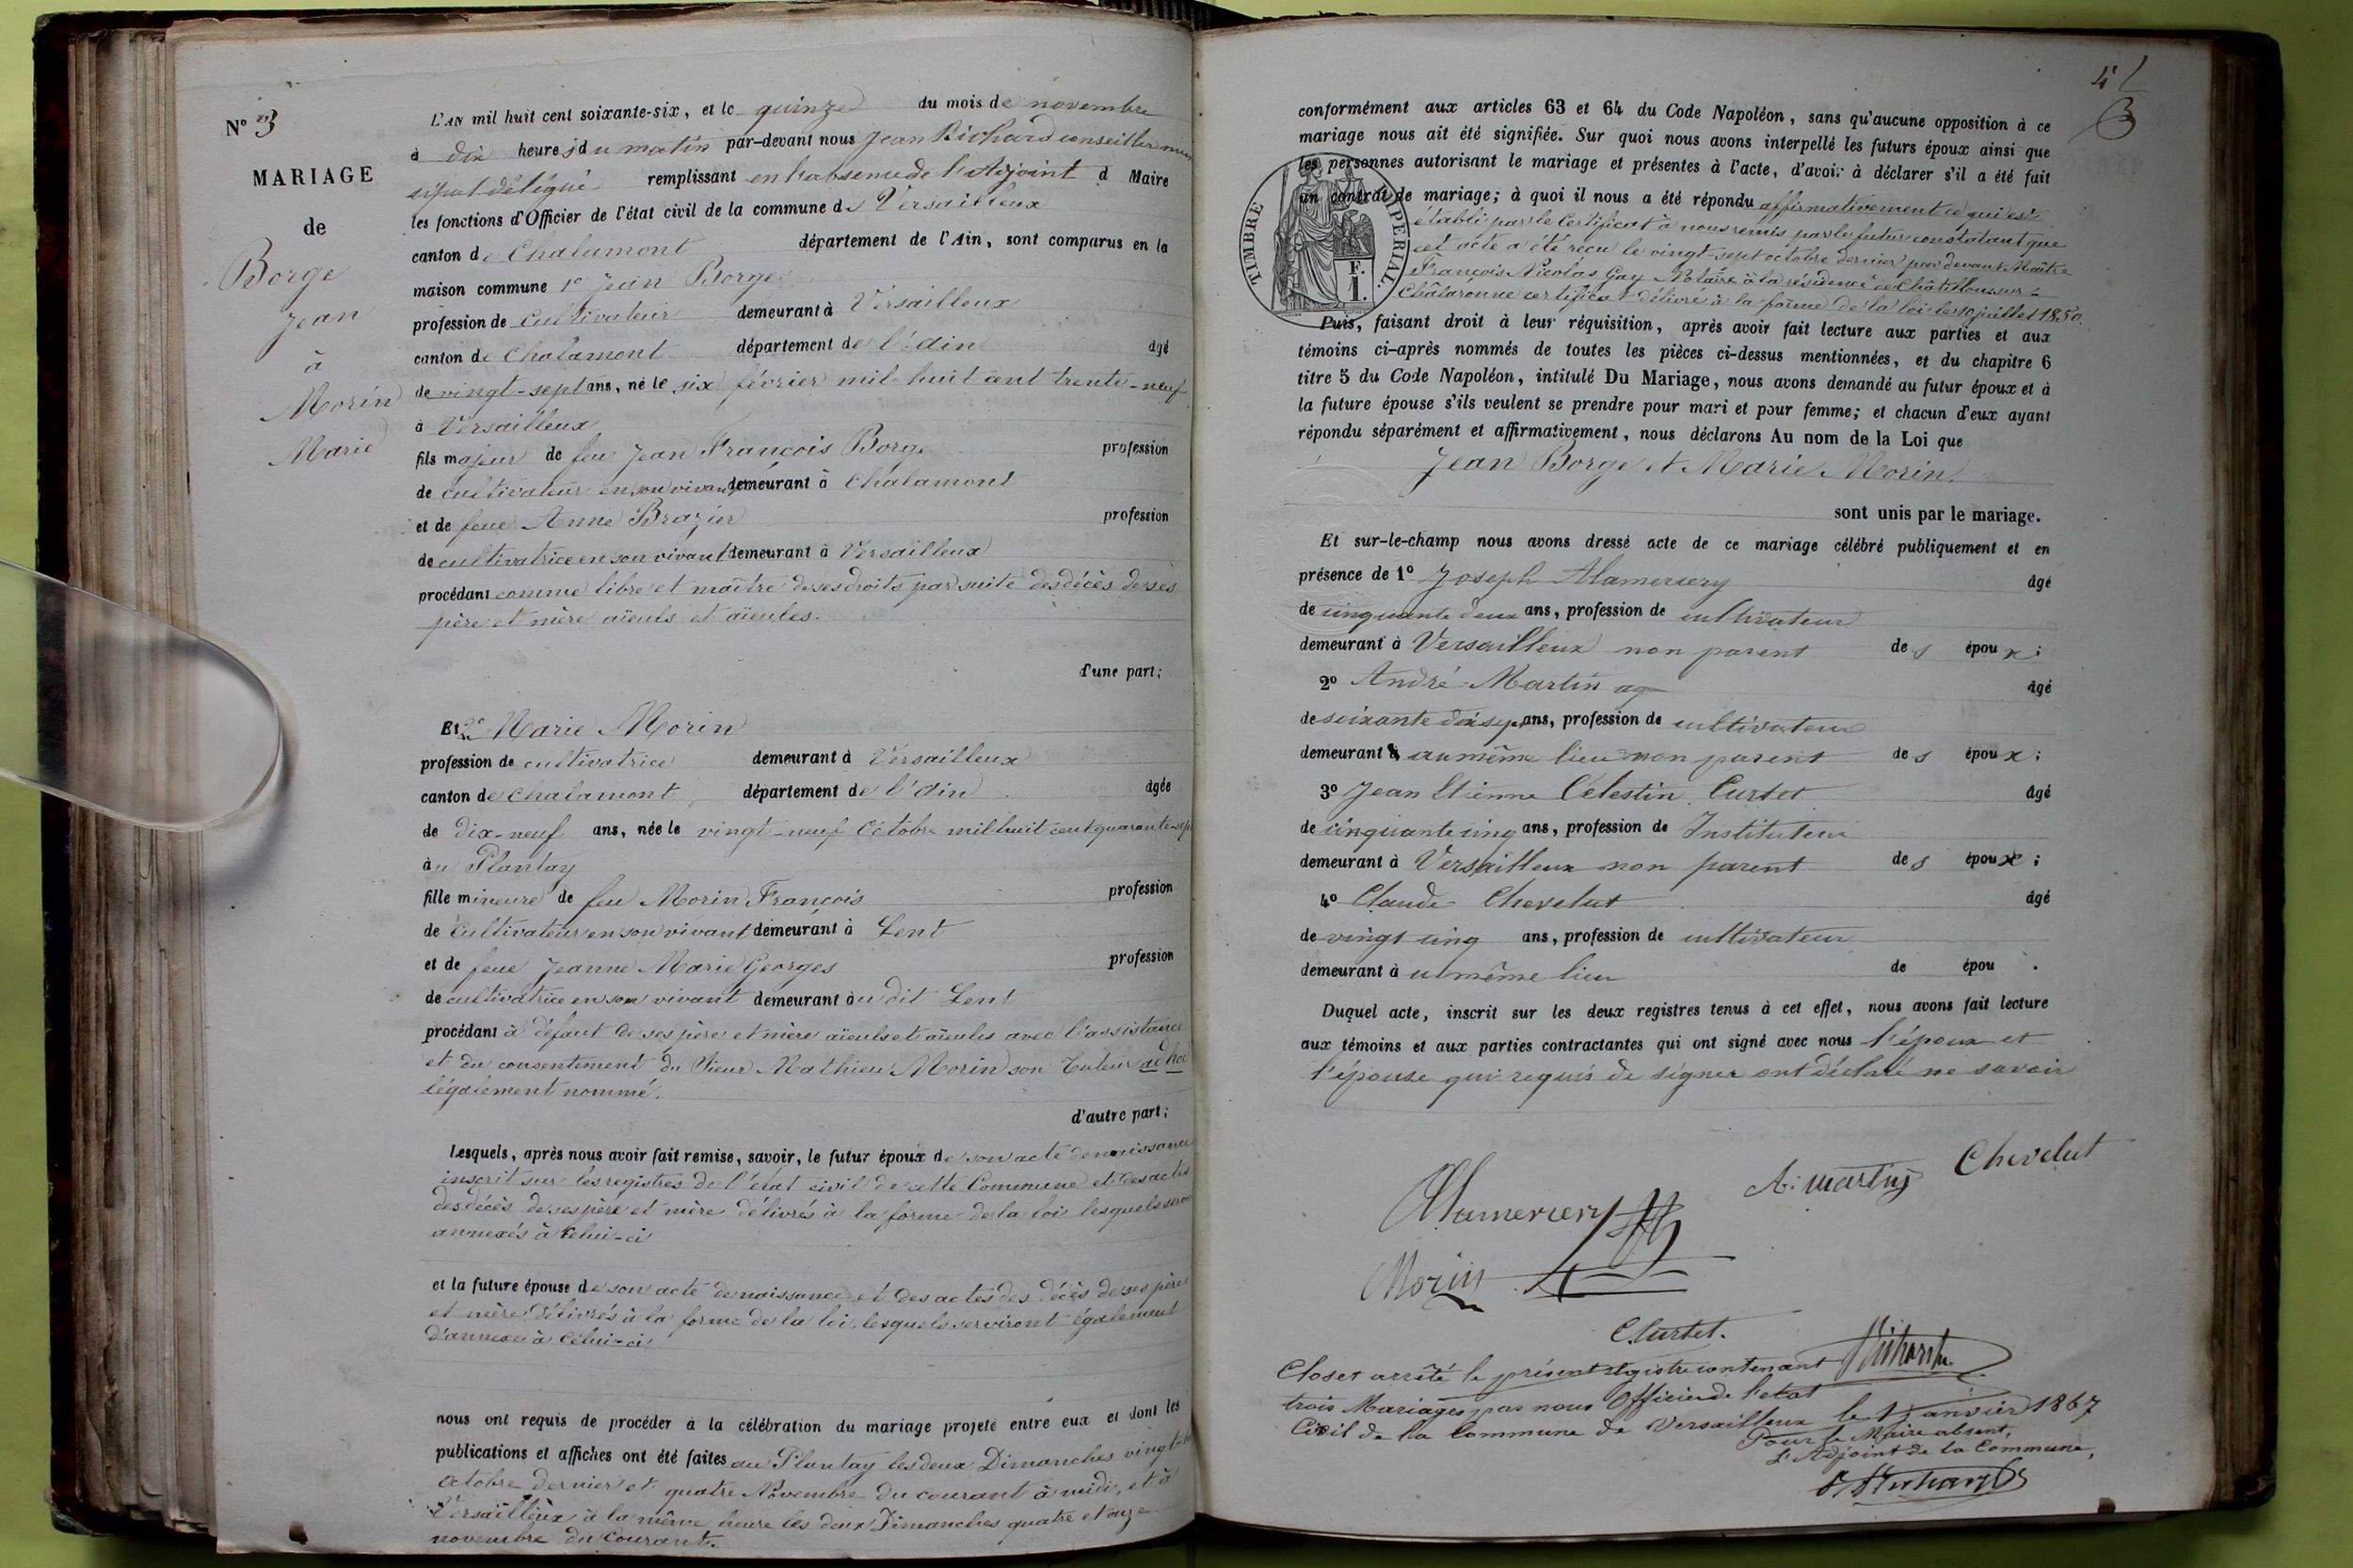 N° 3
MARIAGE
de
Borge
Jean
à
Morin
Marie
L'AN mil huit cent soixante-six, et le quinze du mois de novembre
à dix heures du matin par-devant nous Jean Richard conseiller muni
cipal délégué remplissant en l'absence de l'Adjoint d Maire
les fonctions d'Officier de l'état civil de la commune de Versailleux
canton de Chalamont département de l'Ain, sont comparus en la
maison commune 1° Jean Borge
profession de cultivateur demeurant à Versailleux
canton de Chalamont département de l'Ain âgé
de vingt-sept ans, né le six février mil huit cent trente-neuf
à Versailleux
fils majeur de feu Jean François Borge profession
de cultivateur en son vivant demeurant à Chalamont
et de feue Anne Brazier profession
de cultivatrice en son vivant demeurant à Versailleux
procédant comme libre et maître de ses droits par suite des décès de ses
père et mère aïeuls et aïeules.
d'une part;
Et 2° Marie Morin
profession de cultivatrice demeurant à Versailleux
canton de Chalamont département de l'Ain âgée
de dix-neuf ans, née le vingt-neuf Octobre mil huit cent quarante-sept
au Plantay
fille mineure de feu Morin François profession
de Cultivateur en son vivant demeurant à Lent
et de feue Jeanne Marie Georges profession
de cultivatrice en son vivant demeurant au dit Lent
procédant à défaut de ses père et mère aïeuls et aïeules avec l'assistance
et du consentement du Sieur Mathieu Morin son Tuteur ad hoc
légalement nommé.
d'autre part;
Lesquels, après nous avoir fait remise, savoir, le futur époux de son acte de naissance
inscrit sur les registres de l'état civil de cette Commune et des actes
des décès de ses père et mère délivrés à la forme de la loi lesquels seront
annexés à celui-ci
et la future épouse de son acte de naissance et des actes des décès de ses père
et mère délivrés à la forme de la loi lesquels serviront également
d'annexe à celui-ci
nous ont requis de procéder à la célébration du mariage projeté entre eux et dont les
publications et affiches ont été faites au Plantay les deux Dimanches vingt-
Octobre dernier et quatre Novembre du courant à midi, et à
Versailleux à la même heure les deux Dimanches quatre et onze
novembre du courant.
41
3
conformément aux articles 63 et 64 du Code Napoléon, sans qu'aucune opposition à ce
mariage nous ait été signifiée. Sur quoi nous avons interpellé les futurs époux ainsi que
les personnes autorisant le mariage et présentes à l'acte, d'avoir à déclarer s'il a été fait
un contrat de mariage; à quoi il nous a été répondu affirmativement ce qui est
établi par le Certificat à nous remis par le futur constatant que
cet acte a été reçu le vingt-sept octobre dernier par devant Maître
François Nicolas Gay Notaire à la résidence de Châtillon sur
Chalaronne certificat délivré à la forme de la loi le 10 juillet 1850.
TIMBRE IMPERIAL
F.
1.
Puis, faisant droit à leur réquisition, après avoir fait lecture aux parties et aux
témoins ci-après nommés de toutes les pièces ci-dessus mentionnées, et du chapitre 6
titre 5 du Code Napoléon, intitulé Du Mariage, nous avons demandé au futur époux et à
la future épouse s'ils veulent se prendre pour mari et pour femme; et chacun d'eux ayant
répondu séparément et affirmativement, nous déclarons Au nom de la Loi que
Jean Borge et Marie Morin
sont unis par le mariage.
Et sur-le-champ nous avons dressé acte de ce mariage célébré publiquement et en
présence de 1° Joseph Alamercery âgé
de cinquante deux ans, profession de cultivateur
demeurant à Versailleux non parent des époux;
2° André Martin ag âgé
de soixante dix sept ans, profession de cultivateur
demeurant au même lieu non parent des époux;
3° Jean Etienne Célestin Curtet âgé
de cinquante cinq ans, profession de Instituteur
demeurant à Versailleux non parent des époux;
4° Claude Chevelut âgé
de vingt cinq ans, profession de cultivateur
demeurant au même lieu de épou .
Duquel acte, inscrit sur les deux registres tenus à cet effet, nous avons fait lecture
aux témoins et aux parties contractantes qui ont signé avec nous l'époux et
l'épouse qui requis de signer ont déclaré ne savoir
Alamercery
A. martin
Chevelut
Morin
C. Curtet.
Richard
Clos et arrêté le présent registre contenant
trois Mariages par nous Officier de l'état
Civil de la Commune de Versailleux le 1 Janvier 1867
Pour le Maire absent,
L'Adjoint de la Commune,